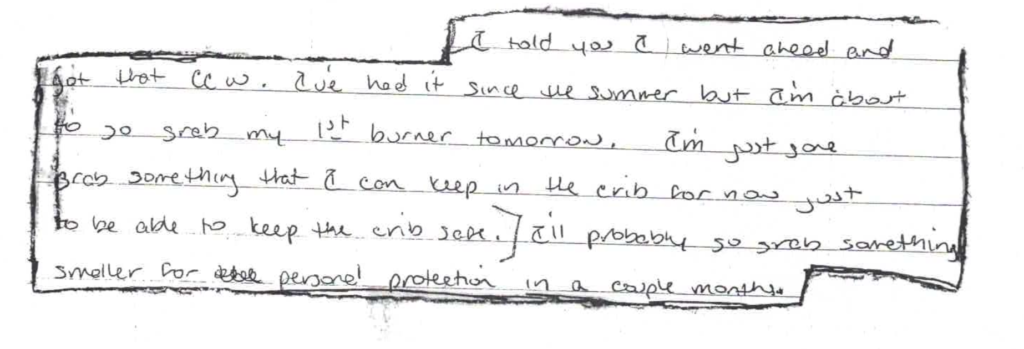 I told you I went ahead and
got that CCW. I've had it since the summer but I'm about
to go grab my 1st burner tomorrow. I'm just gone
grab something that I can keep in the crib for now just
to be able to keep the crib safe.] I'll probably go grab something
smaller for personal protection in a couple months.